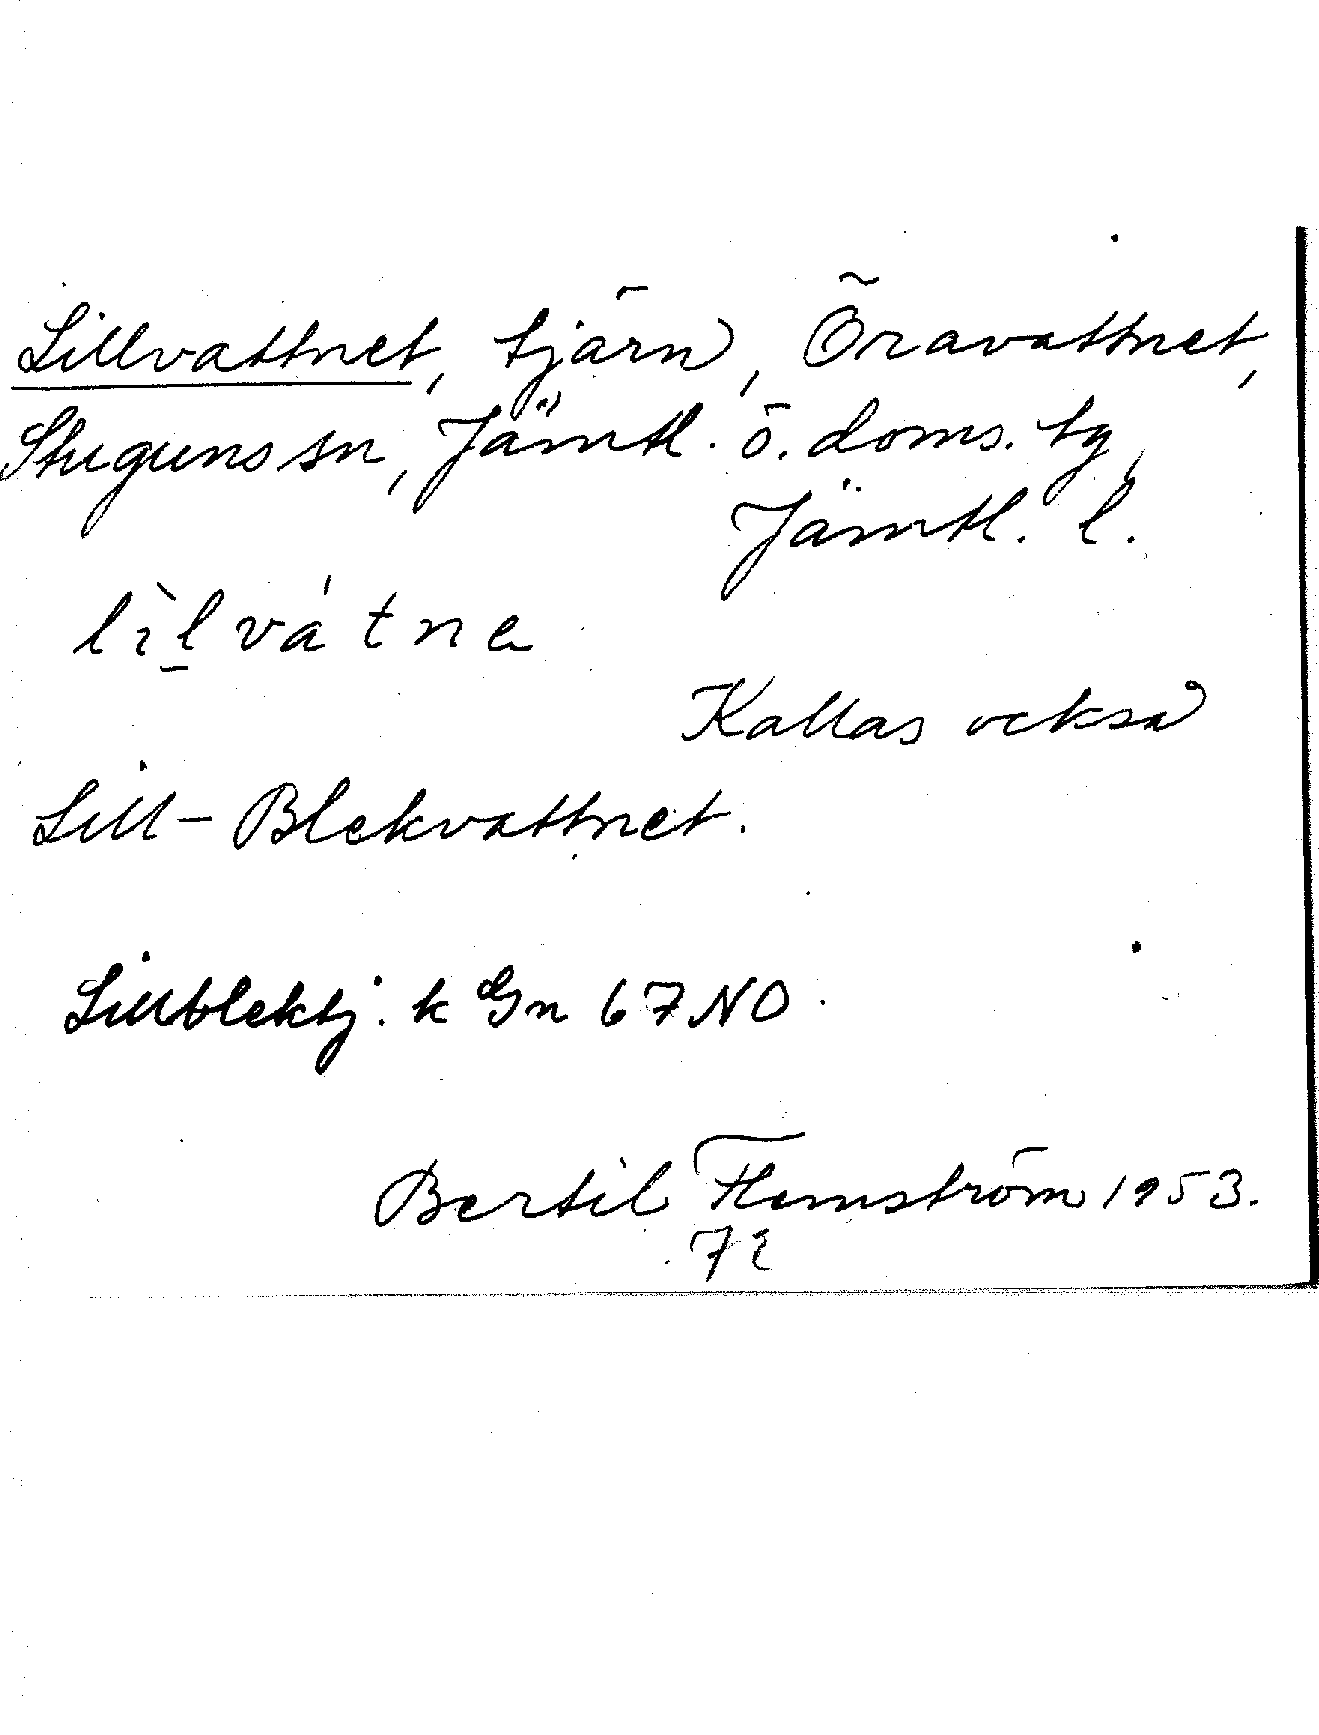 Lillvattnet, tjärn, Öravattnet,
Stuguns sn, Jämtl. ö. doms. tg,
Jämtl. l.
lìḻvátne
Kallas också
Lill-Blekvattnet.
Lillblektj. k Gn 67 NO
Bertil Flemström 1953.